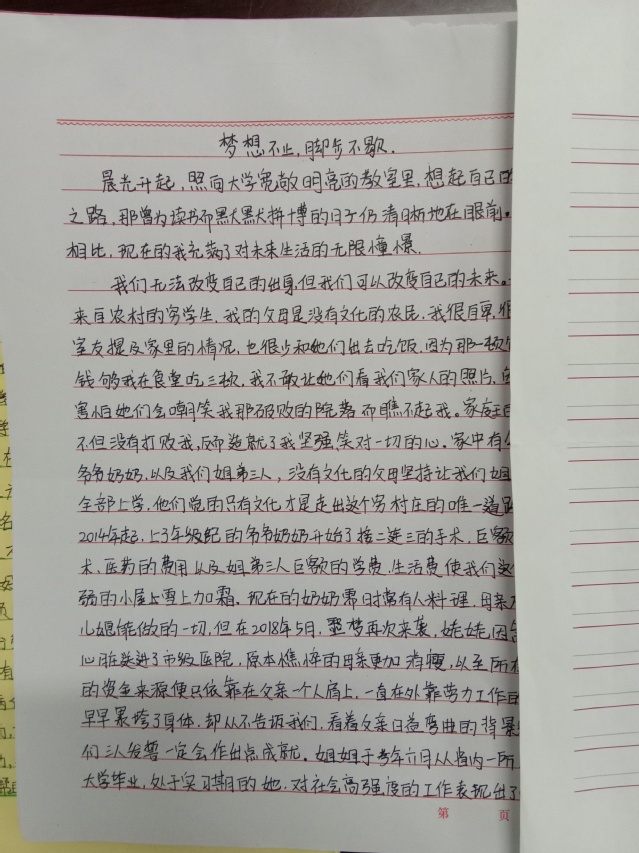 梦想不止,脚步不歇.
晨光升起,照向大学宽敞明亮的教室里,想起自己
之路,那曾为读书而默默拼博的日子仍清晰地在眼前.
相比,现在的我充满了对未来生活的无限憧憬.
我们无法改变自己的出身,但我们可以改变自己的未来.
来自农村的穷学生,我的父母是没有文化的农民,我很自卑,
室友提及家里的情况,也很少和她们出去吃饭,因为那一顿
钱够我在食堂吃三顿,我不敢让她们看我们家人的照片,
害怕她们会嘲笑我那破败的院落而瞧不起我。家庭
不但没有打败我,反而造就了我坚强笑对一切的心。家中有
爷爷奶奶,以及我们姐弟三人,没有文化的父母坚持让我们姐
全部上学,他们觉的只有文化才是走出这个穷村庄的唯一道路
2014年起,上了年级纪的爷爷奶奶开始了接二连三的手术,巨额
术、医药的费用以及姐弟三人巨额的学费,生活费使我们这
弱的小屋上雪上加霜。现在的奶奶需时常有人料理,母亲
儿媳能做的一切,但在2018年5月,噩梦再次来袭,姥姥因
心脏送进了市级医院,原本憔悴的母亲更加消瘦,以至所
的资金来源便只依靠在父亲一个人肩上,一直在外靠劳力工作
早早累垮了身体,却从不告诉我们,看着父亲日益弯曲的背
们三人发誓一定会作出点成就。姐姐于今年六月从省内一所
大学毕业,处于实习期的她,对社会高强度的工作表现出了
第 页